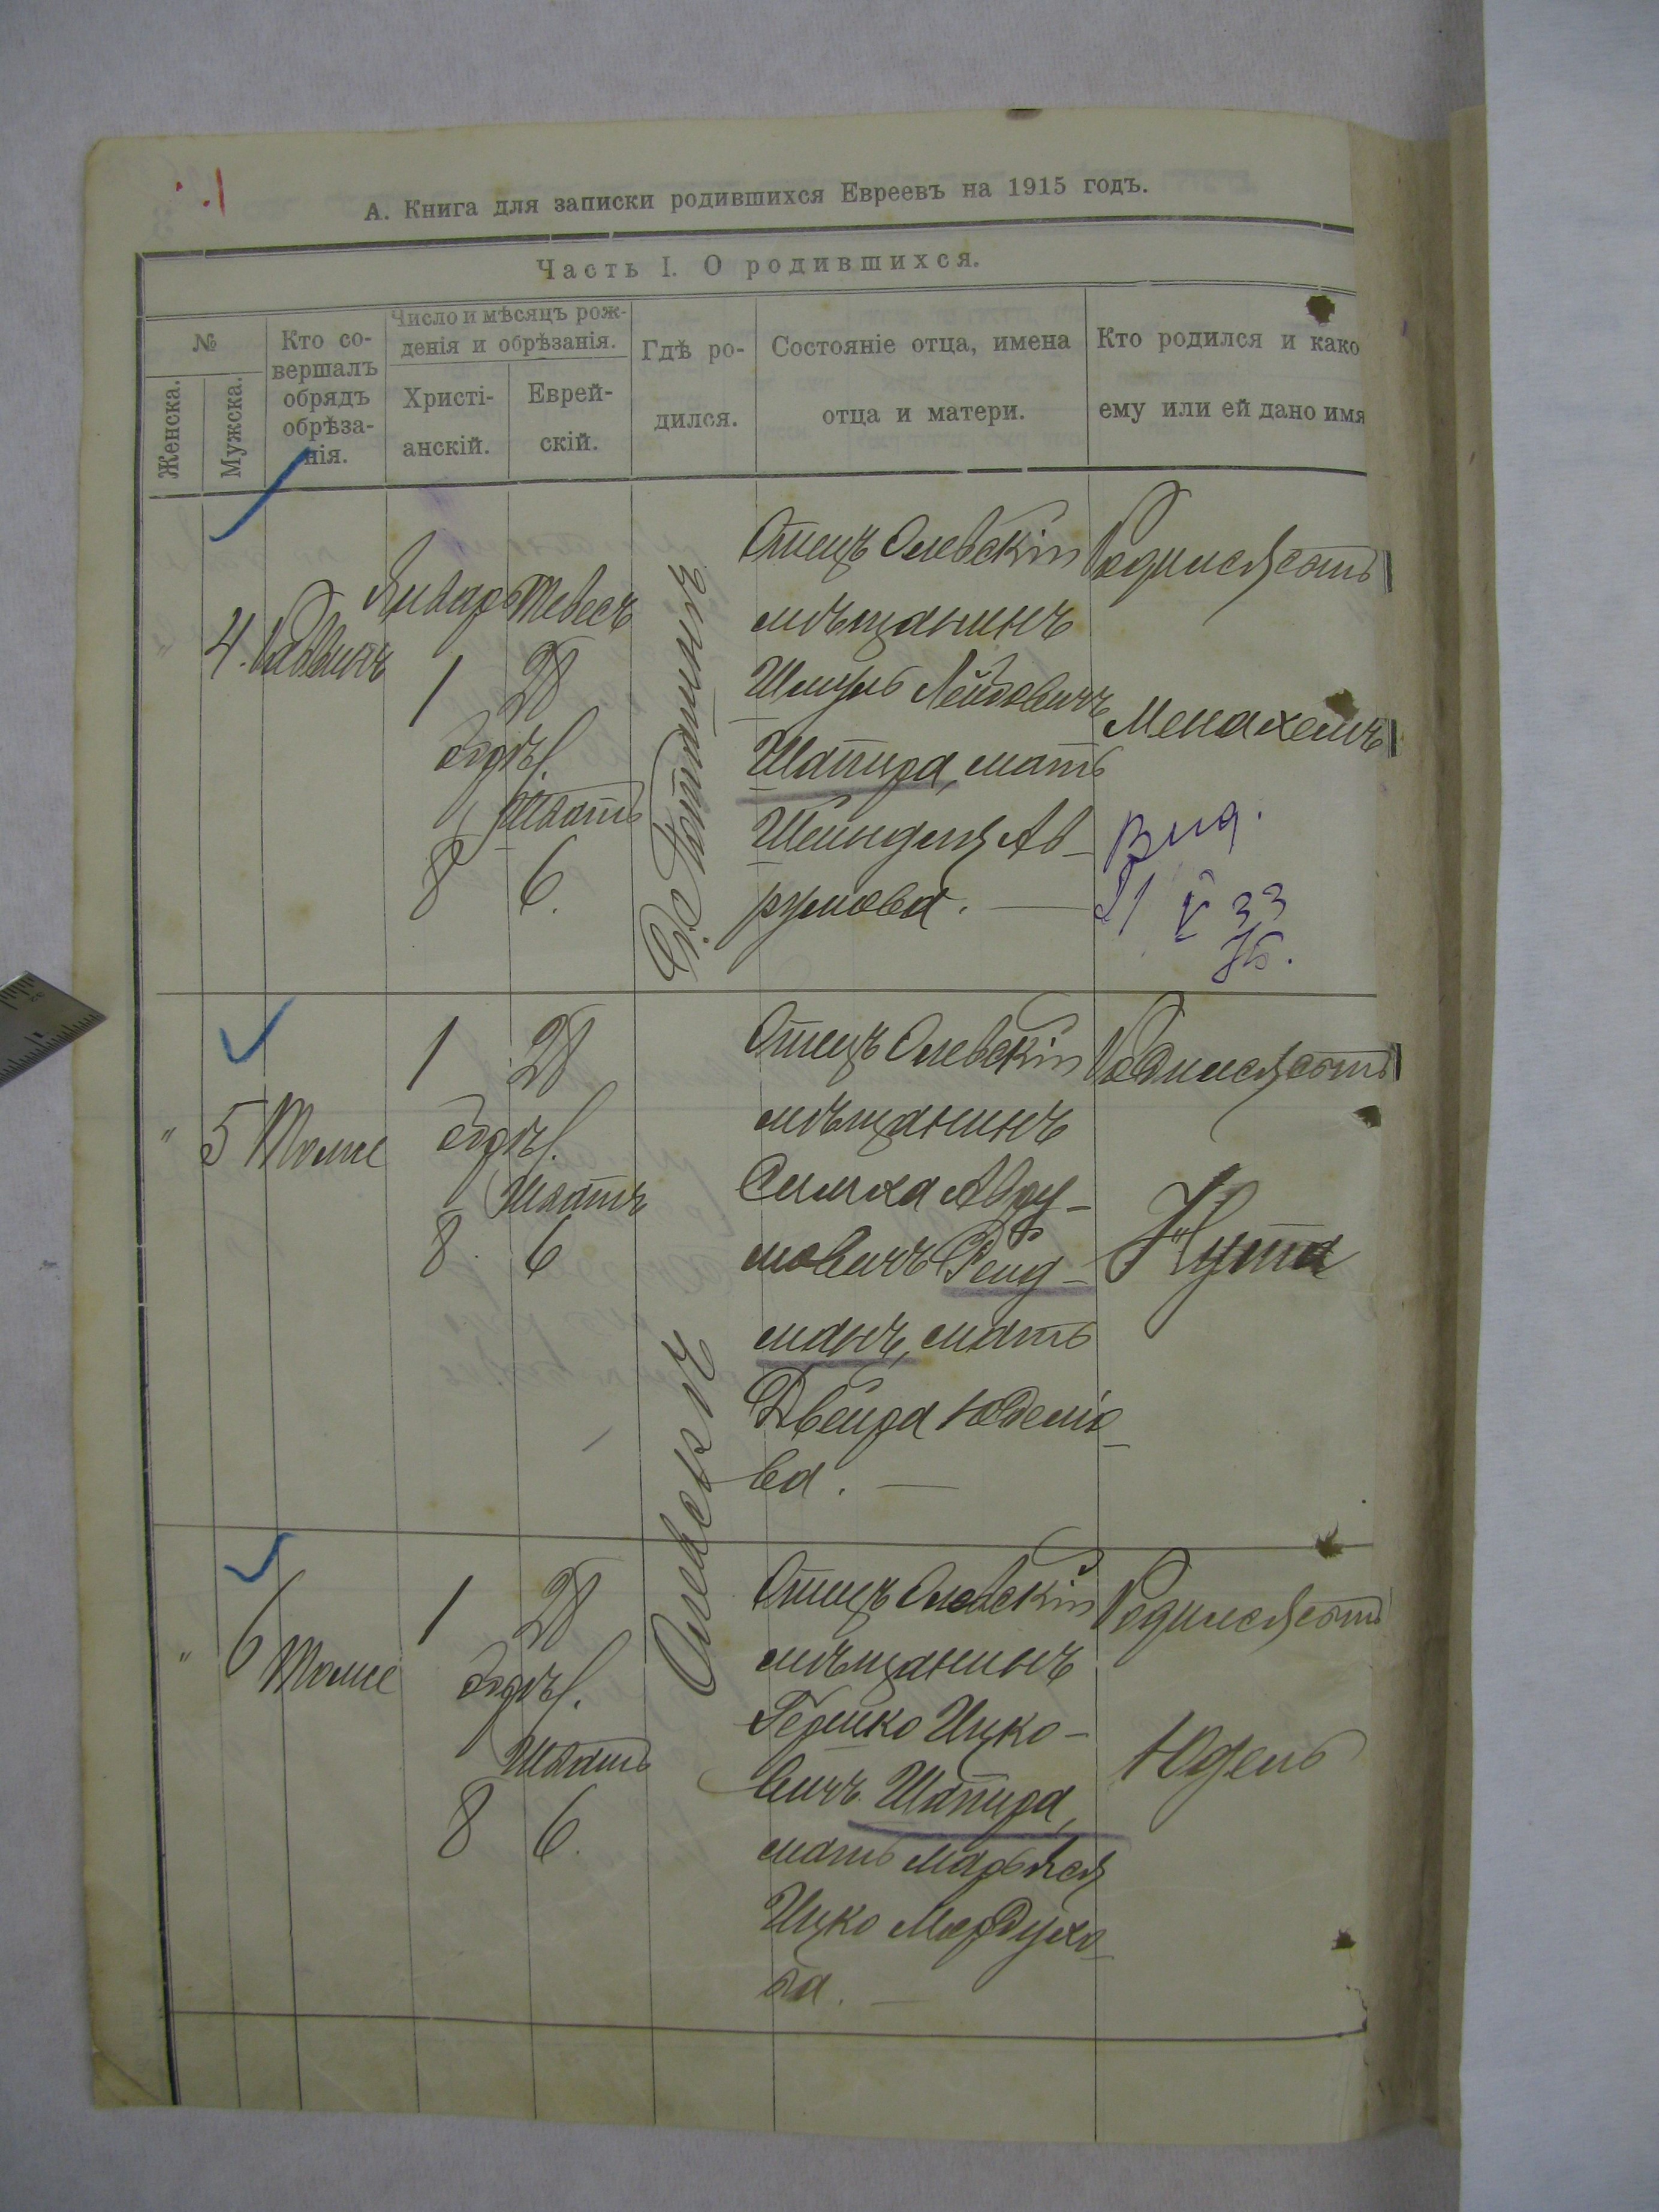 А. Книга для записки родившихся Евреевъ на 1915 годъ.
Часть I. О родившихся.
№
Женска.
Мужска.
Кто со-
вершалъ
обрядъ
обрѣза-
нія.
Число и мѣсяцъ рож-
денія и обрѣзанія.
Христі-
анскій.
Еврей-
скій.
Гдѣ ро-
дился.
Состояніе отца, имена
отца и матери.
Кто родился и како
ему или ей дано имя
" 4. Раввинъ
Январь Тевесъ
1 28
обрѣз.
Шватъ
8 6.
Отецъ Олевскій
мѣщанинъ
Шмуль Лейбовичъ
Шапира, мать
Шейндля Ав-
румова. —
Родился сынъ
Менахемъ
Выд.
21 V 33
" 5 Тоже
1 28
обрѣз.
Шватъ
8. 6
Олевскъ
Отецъ Олевскій
мѣщанинъ
Симха Авру-
мовичъ Фельд-
манъ, мать
Двейра Юделіо-
ва. —
Родился сынъ
Нута
" 6 Тоже
1 28
обрѣз.
Шватъ
8 6.
Отецъ Олевскій
мѣщанинъ
Гершко Ицко-
вичъ Шапира,
мать Марьяся
Ицко Мордухо-
ва. —
Родился сынъ
Юдель